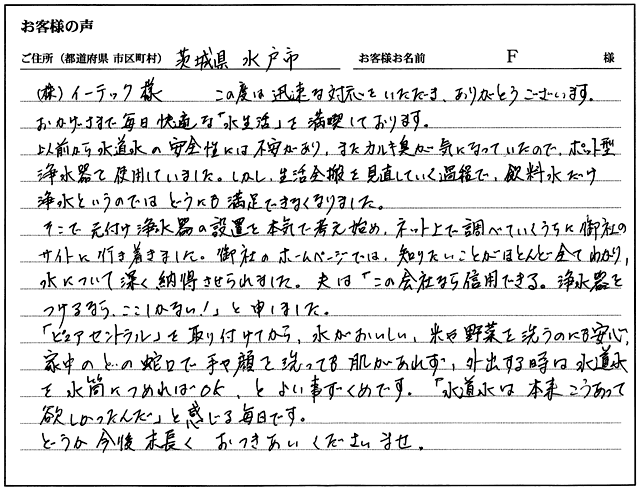 お客様の声
ご住所（都道府県 市区町村） 茨城県 水戸市 お客様お名前 F 様
(株)イーテック様 この度は迅速な対応をいただき、ありがとうございます。
おかげさまで毎日快適な「水生活」を満喫しております。
以前から水道水の安全性には不安があり、またカルキ臭が気になっていたので、ポット型
浄水器を使用していました。しかし、生活全搬を見直していく過程で、飲料水だけ
浄水というのではどうにも満足できなくなりました。
そこで元付け浄水器の設置を本気で考え始め、ネット上で調べていくうちに御社の
サイトに行き着きました。御社のホームページでは、知りたいことがほとんど全てわかり、
水について深く納得させられました。夫は「この会社なら信用できる。浄水器を
つけるなら、ここしかない！」と申しました。
「ピュアセントラル」を取り付けてから、水がおいしい、米や野菜を洗うのにも安心、
家中のどの蛇口で手や顔を洗っても肌があれず、外出する時は水道水
を水筒につめればOK、とよい事ずくめです。「水道水は本来こうあって
欲しかったんだ」と感じる毎日です。
どうか今後末長くおつきあいくださいませ。